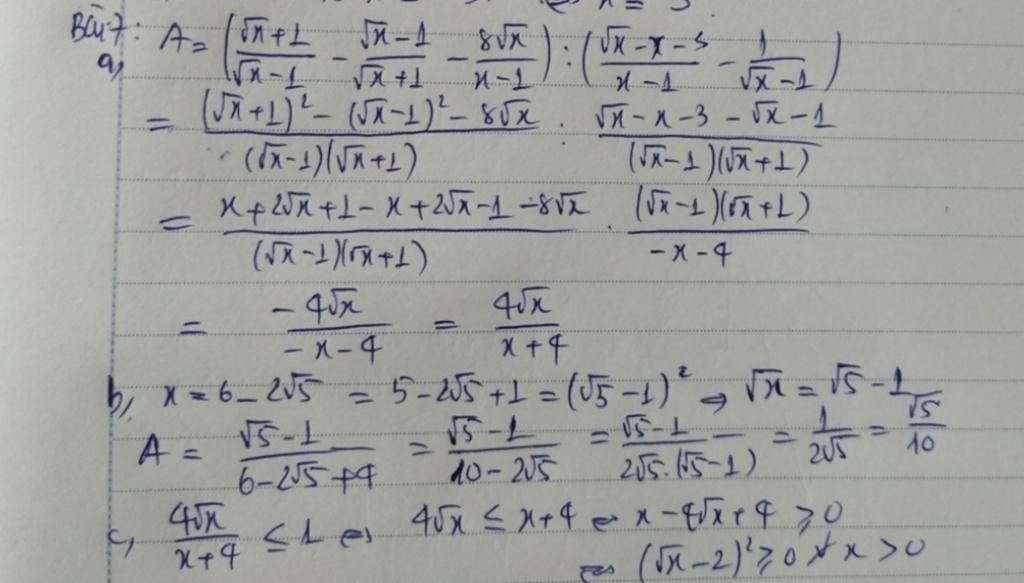 Bài 7: A = ( (√x+1)/(√x-1) - (√x-1)/(√x+1) - 8√x/(x-1) ) : ( (√x-x-3)/(x-1) - 1/(√x-1) )
a,
= ((√x+1)² - (√x-1)² - 8√x)/((√x-1)(√x+1)) : (√x-x-3-√x-1)/((√x-1)(√x+1))
= (x+2√x+1-x+2√x-1-8√x)/((√x-1)(√x+1)) . ((√x-1)(√x+1))/(-x-4)
= (-4√x)/(-x-4) = 4√x/(x+4)
b, x = 6-2√5 = 5-2√5+1 = (√5-1)² ⇒ √x = √5-1
A = (√5-1)/(6-2√5+4) = (√5-1)/(10-2√5) = (√5-1)/(2√5.(√5-1)) = 1/(2√5) = √5/10
c, 4√x/(x+4) ≤ 1 ⇔ 4√x ≤ x+4 ⇔ x-4√x+4 ≥ 0
⇔ (√x-2)² ≥ 0 ∀ x > 0